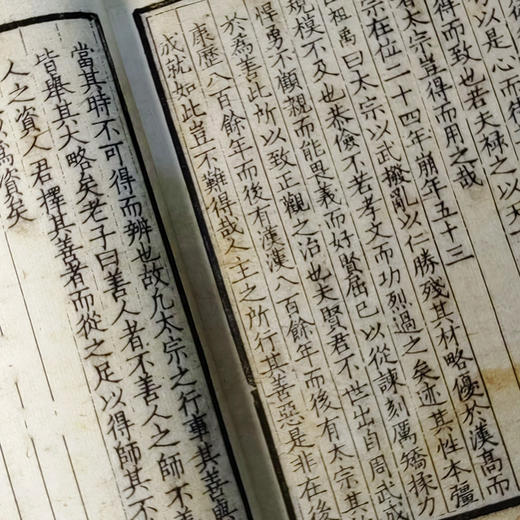 以是心而符
得而致也若夫祿之以
太宗豈得而用之哉
宗在位二十四年崩年五十三
祖禹曰太宗以武撥亂以仁勝殘其材略優於漢高而
規模不及也恭儉不若孝文而功烈過之矣迹其性本彊
悍勇不顧親而能畏義而好賢屈己以從諫刻厲矯揉力
於為善此所以致正觀之治也夫賢君不世出自周武成
康歷八百餘年而後有漢漢八百餘年而後有太宗其
成就如此豈不難得哉人主之所行其善惡是非在後
當其時不可得而辨也故凡太宗之行事其善與
皆舉其大略矣老子曰善人者不善人之師不善
人之資人君擇其善者而從之足以得師其不
以為資矣